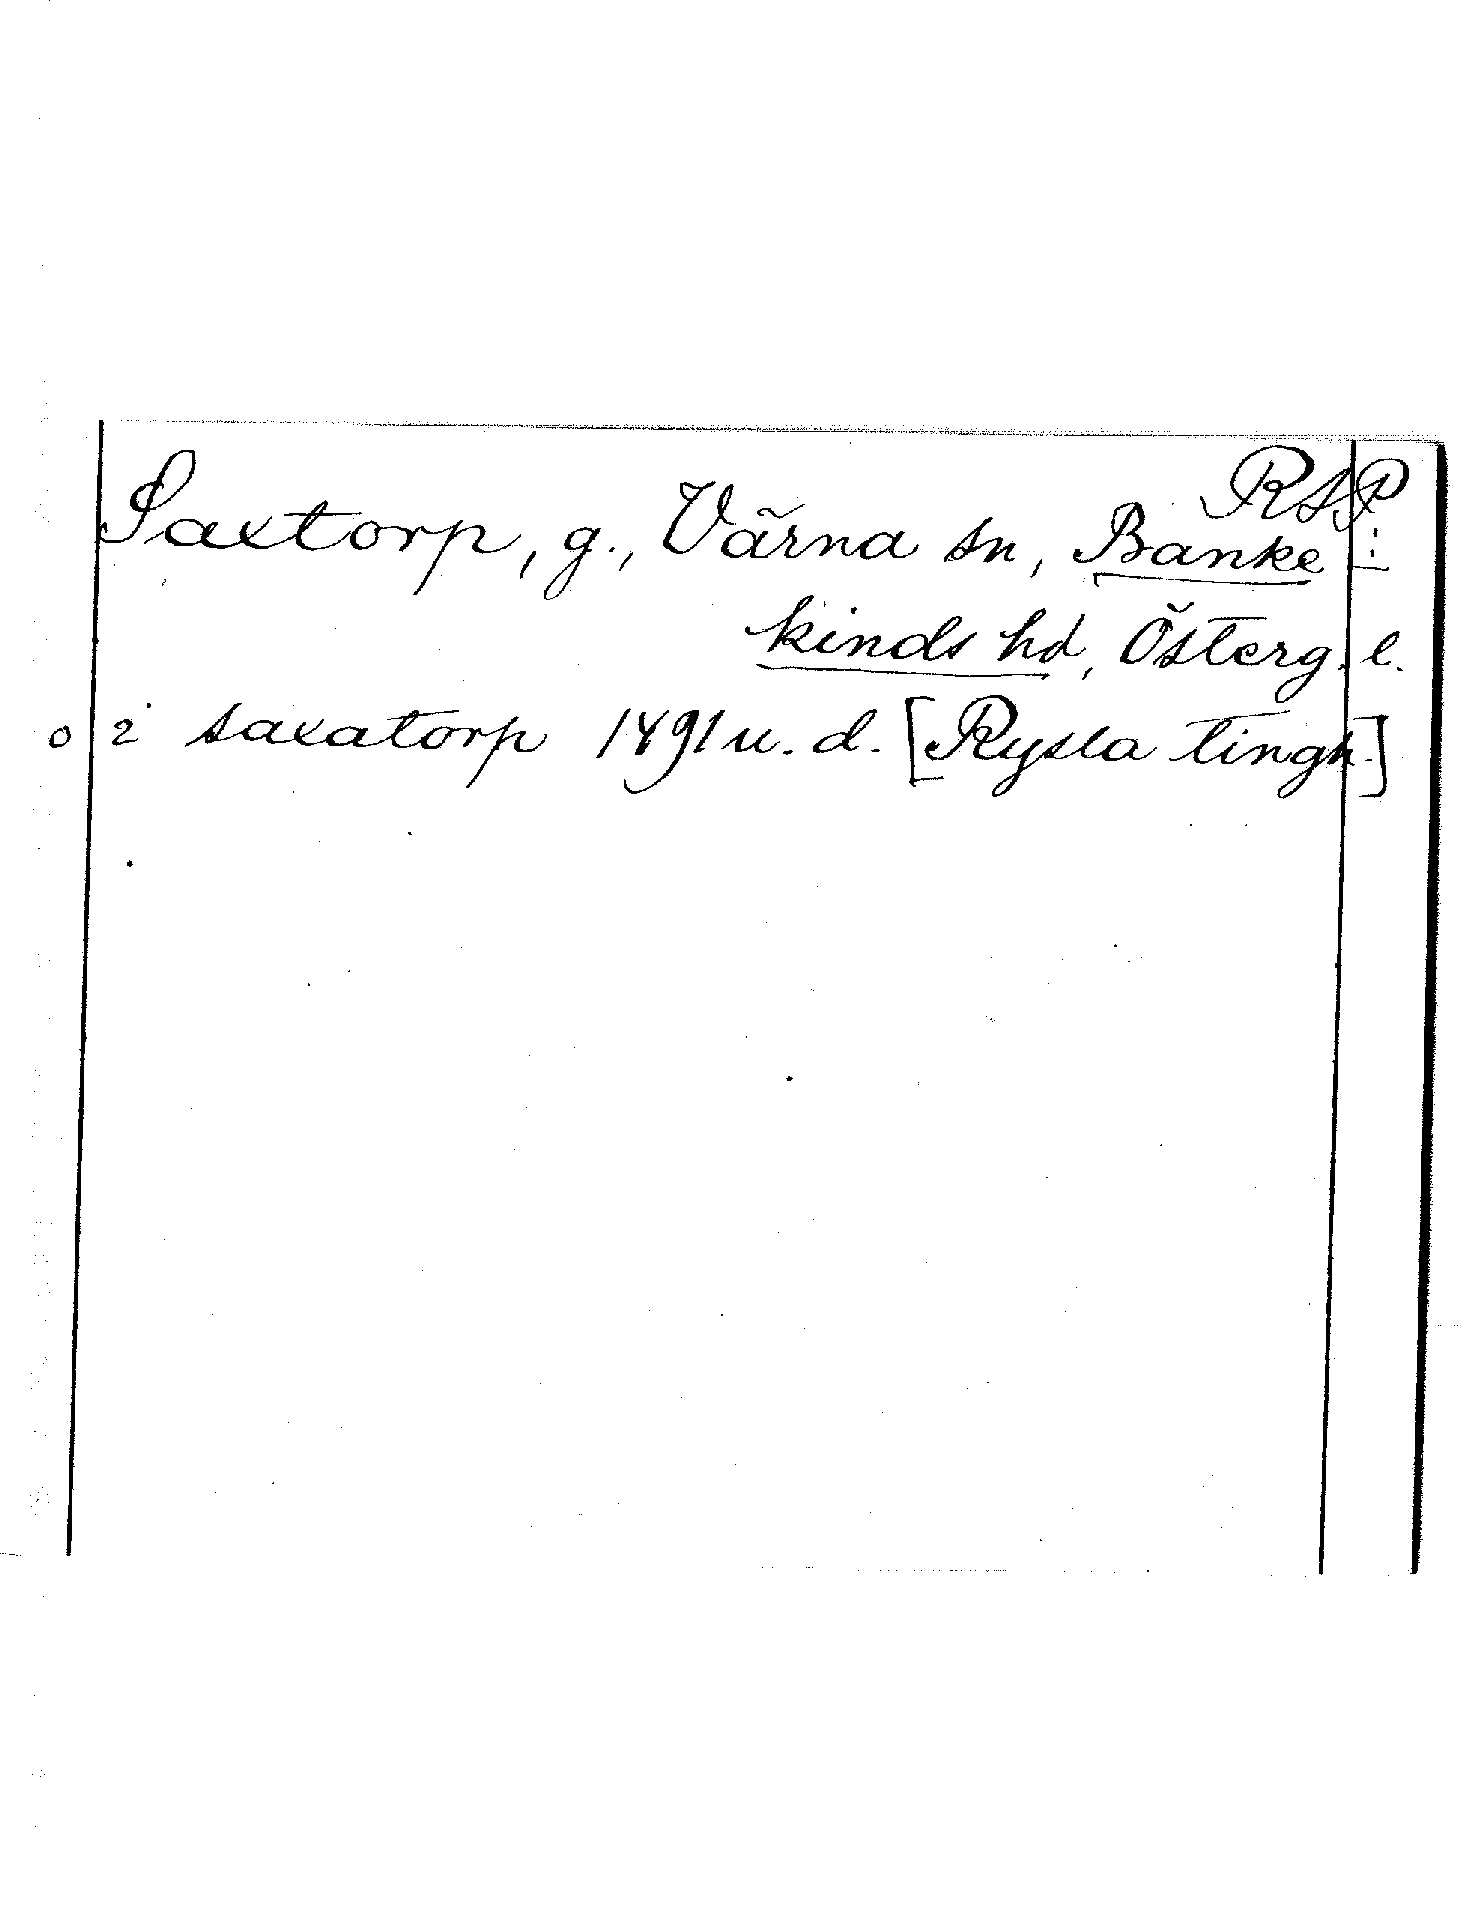 RAP
Saxtorp, g., Värna sn, Banke-
kinds hd, Österg. l.
o i saxatorp 1491 u. d. [Rysla tingh.]